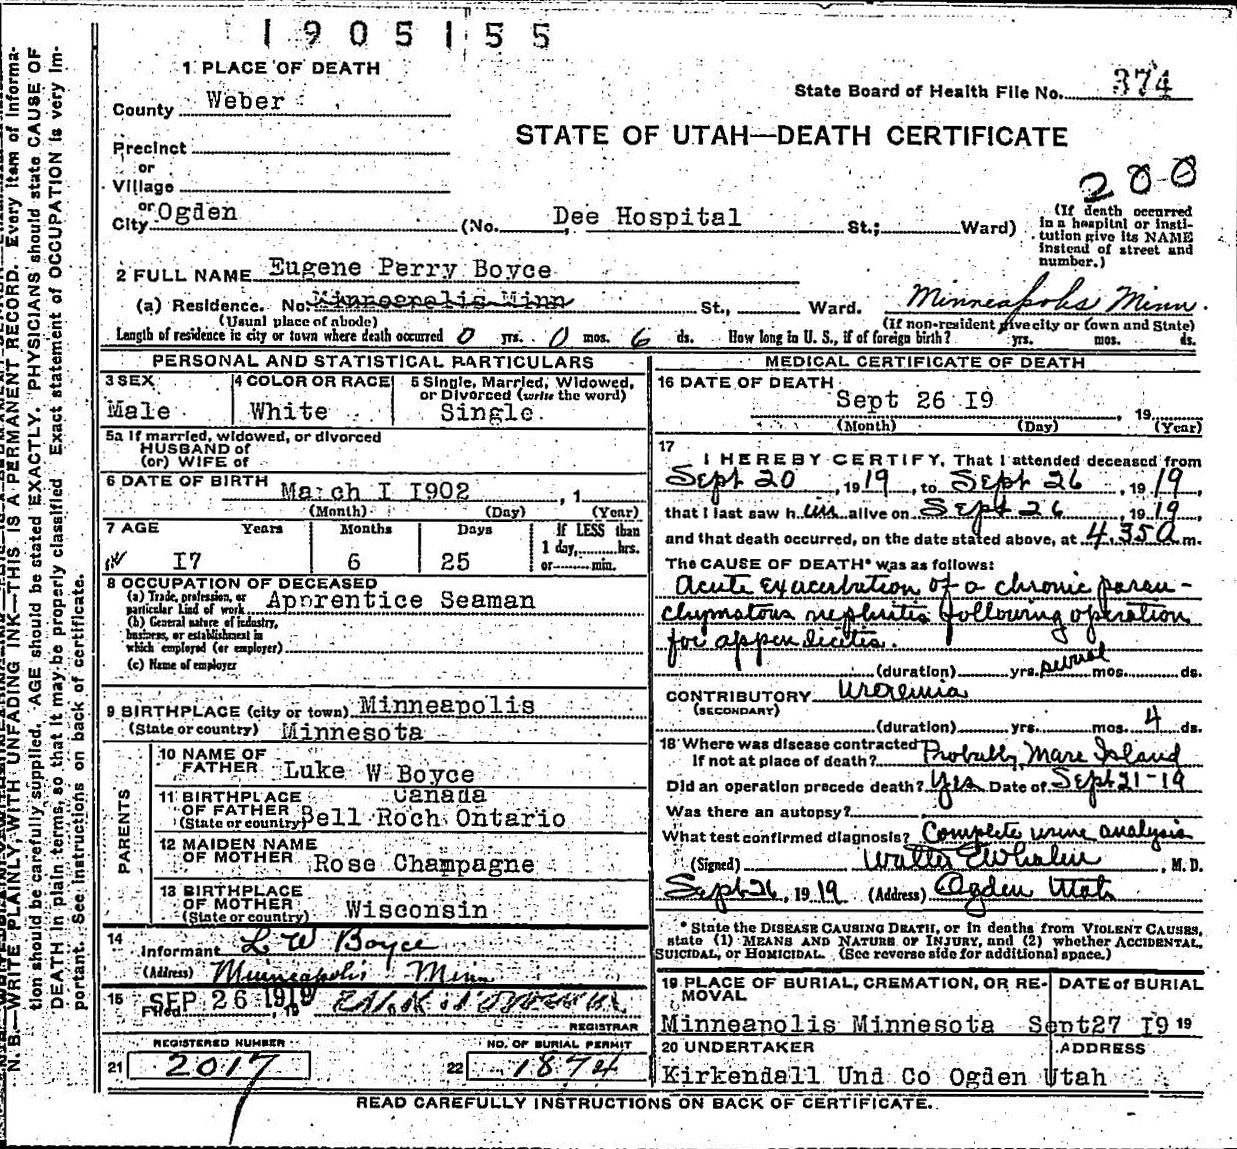 1905155
1 PLACE OF DEATH
County Weber
State Board of Health File No. 374
STATE OF UTAH—DEATH CERTIFICATE
Precinct
or
Village
200
or
City Ogden (No. Dee Hospital St.; Ward)
(If death occurred in a hospital or institution give its NAME instead of street and number.)
2 FULL NAME Eugene Perry Boyce
(a) Residence. No. Kinneepolis Minn St., Ward. Minneapolis Minn.
(Usual place of abode) (If non-resident give city or town and State)
Length of residence in city or town where death occurred 0 yrs. 0 mos. 6 ds. How long in U. S., if of foreign birth? yrs. mos. ds.
PERSONAL AND STATISTICAL PARTICULARS
3 SEX Male
4 COLOR OR RACE White
5 Single, Married, Widowed, or Divorced (write the word) Single
5a If married, widowed, or divorced
HUSBAND of
(or) WIFE of
6 DATE OF BIRTH March I I902 , 1
(Month) (Day) (Year)
7 AGE Years Months Days If LESS than
1 day, hrs.
or min.
I7 6 25
8 OCCUPATION OF DECEASED
(a) Trade, profession, or particular kind of work Apprentice Seaman
(b) General nature of industry, business, or establishment in which employed (or employer)
(c) Name of employer
9 BIRTHPLACE (city or town) Minneapolis
(State or country) Minnesota
PARENTS
10 NAME OF FATHER Luke W Boyce
11 BIRTHPLACE OF FATHER Canada
(State or country) Bell Roch Ontario
12 MAIDEN NAME OF MOTHER Rose Champagne
13 BIRTHPLACE OF MOTHER
(State or country) Wisconsin
14
Informant L W Boyce
(Address) Minneapolis Minn
15
Filed SEP 26 1919 , 19
REGISTRAR
REGISTERED NUMBER
21 2017
NO. OF BURIAL PERMIT
22 1874
MEDICAL CERTIFICATE OF DEATH
16 DATE OF DEATH
Sept 26 I9 , 19
(Month) (Day) (Year)
17
I HEREBY CERTIFY, That I attended deceased from
Sept 20 , 1919, to Sept 26 , 1919,
that I last saw him alive on Sept 26 , 1919,
and that death occurred, on the date stated above, at 4.35a m.
The CAUSE OF DEATH* was as follows:
Acute exacerbation of a chronic paren-
chymatous nephritis following operation
for appendicitis.
(duration) yrs. several mos. ds.
CONTRIBUTORY Uremia
(SECONDARY)
(duration) yrs. mos. 4 ds.
18 Where was disease contracted
If not at place of death? Probably Mare Island
Did an operation precede death? Yes Date of Sept 21-19
Was there an autopsy?
What test confirmed diagnosis? Complete urine analysis
(Signed) Walter E Whalen , M. D.
Sept 26, 1919 (Address) Ogden Utah
* State the DISEASE CAUSING DEATH, or in deaths from VIOLENT CAUSES,
state (1) MEANS AND NATURE OF INJURY, and (2) whether ACCIDENTAL,
SUICIDAL, or HOMICIDAL. (See reverse side for additional space.)
19 PLACE OF BURIAL, CREMATION, OR RE-
MOVAL
DATE of BURIAL
Minneapolis Minnesota Sept27 I9 19
20 UNDERTAKER ADDRESS
Kirkendall Und Co Ogden Utah
READ CAREFULLY INSTRUCTIONS ON BACK OF CERTIFICATE.
N. B.—WRITE PLAINLY, WITH UNFADING INK—THIS IS A PERMANENT RECORD. Every item of informa-
tion should be carefully supplied. AGE should be stated EXACTLY. PHYSICIANS should state CAUSE OF
DEATH in plain terms, so that it may be properly classified. Exact statement of OCCUPATION is very im-
portant. See instructions on back of certificate.